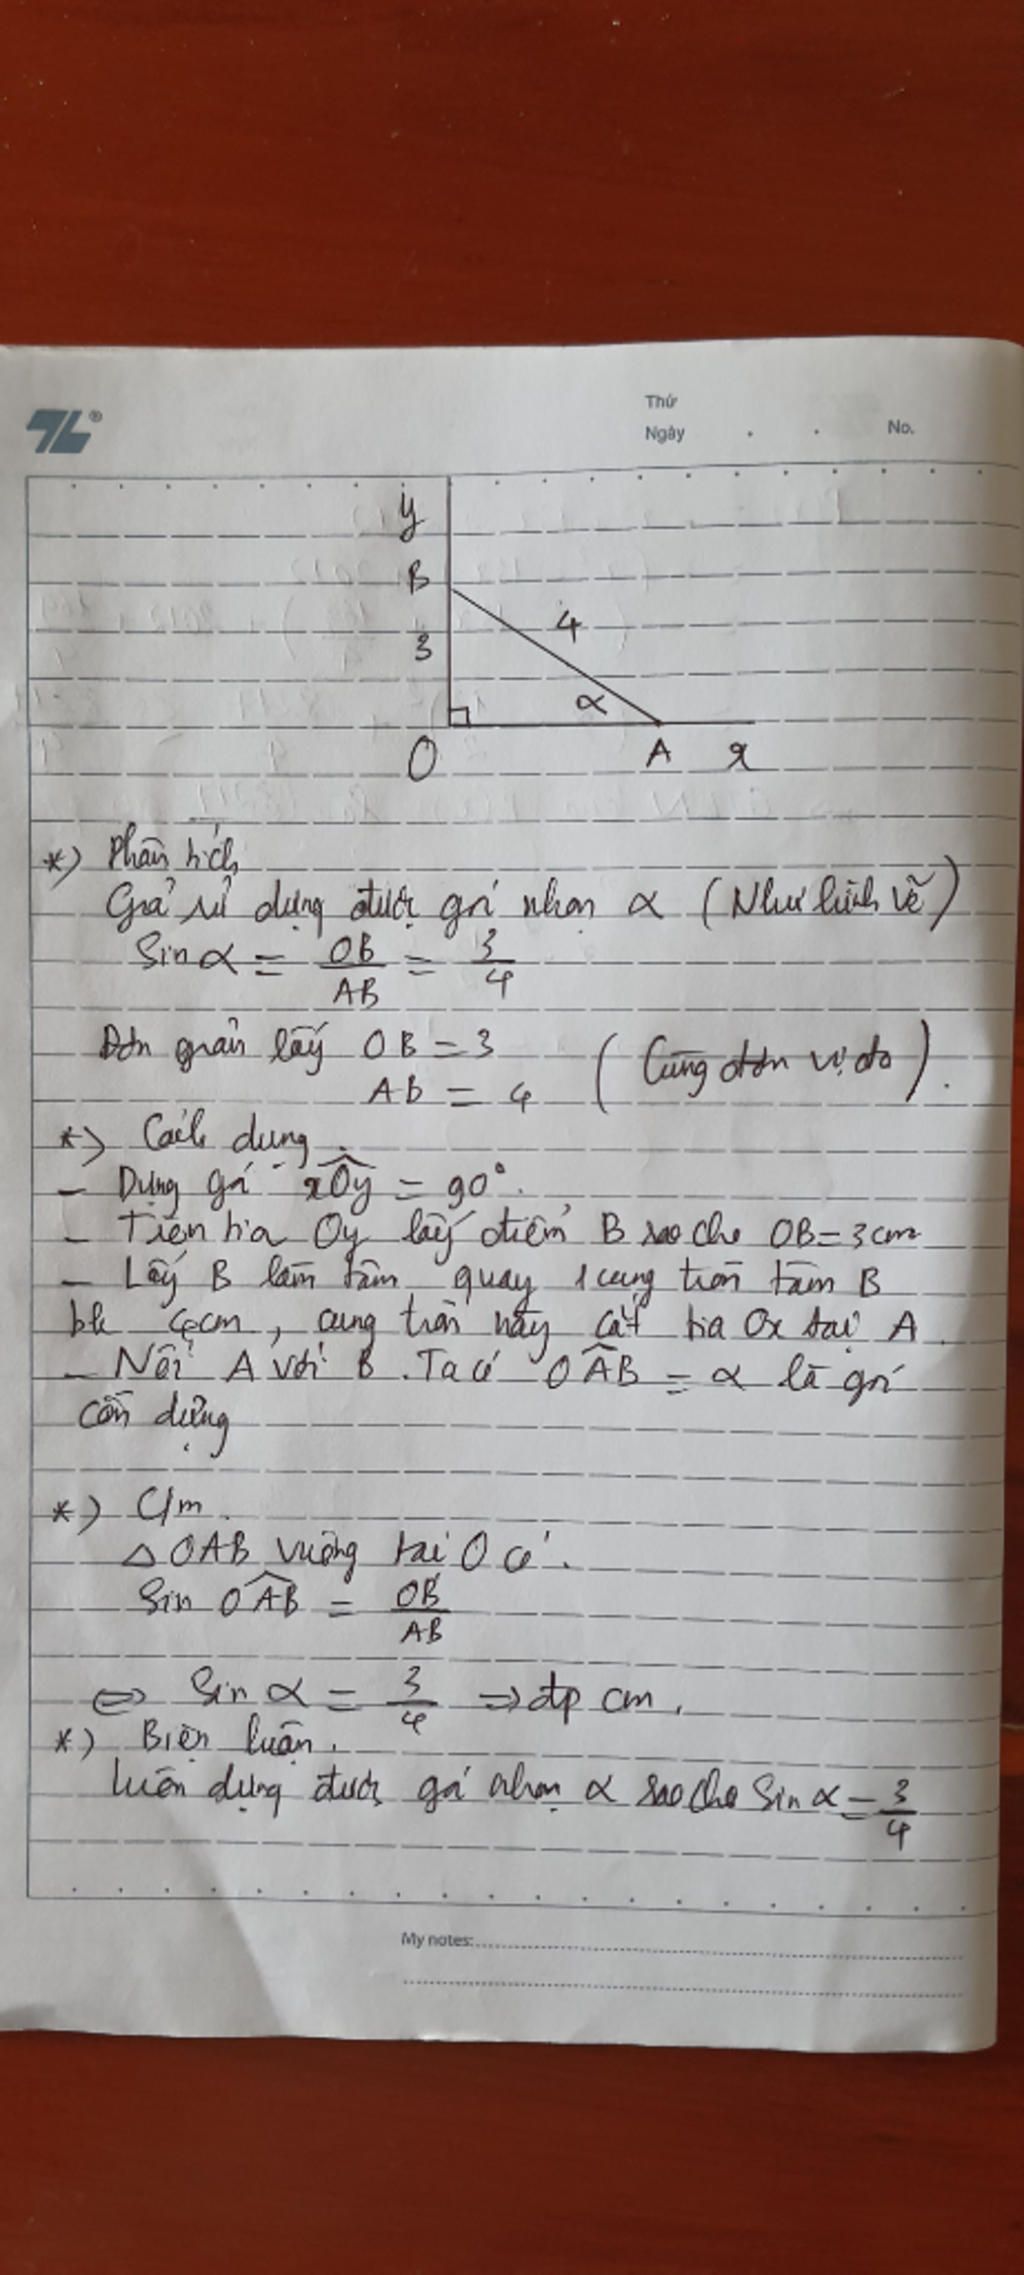 TL®
Thứ
Ngày . . No.
y
B
4
3
α
O A x
*) Phân tích
Giả sử dựng được góc nhọn α (Như hình vẽ)
Sin α = OB/AB = 3/4
Đơn giản lấy OB = 3
AB = 4 (Cùng đơn vị đo).
*) Cách dựng.
- Dựng góc xOy = 90°.
- Trên tia Oy lấy điểm B sao cho OB = 3cm
- Lấy B làm tâm quay 1 cung tròn tâm B
bk 4cm, cung tròn này cắt tia Ox tại A.
- Nối A với B. Ta có OAB = α là góc
cần dựng
*) C/m.
△ OAB vuông tại O có.
Sin OAB = OB/AB
⇔ Sin α = 3/4 ⇒ đpcm.
*) Biện luận.
luôn dựng được góc nhọn α sao cho Sin α = 3/4
My notes: